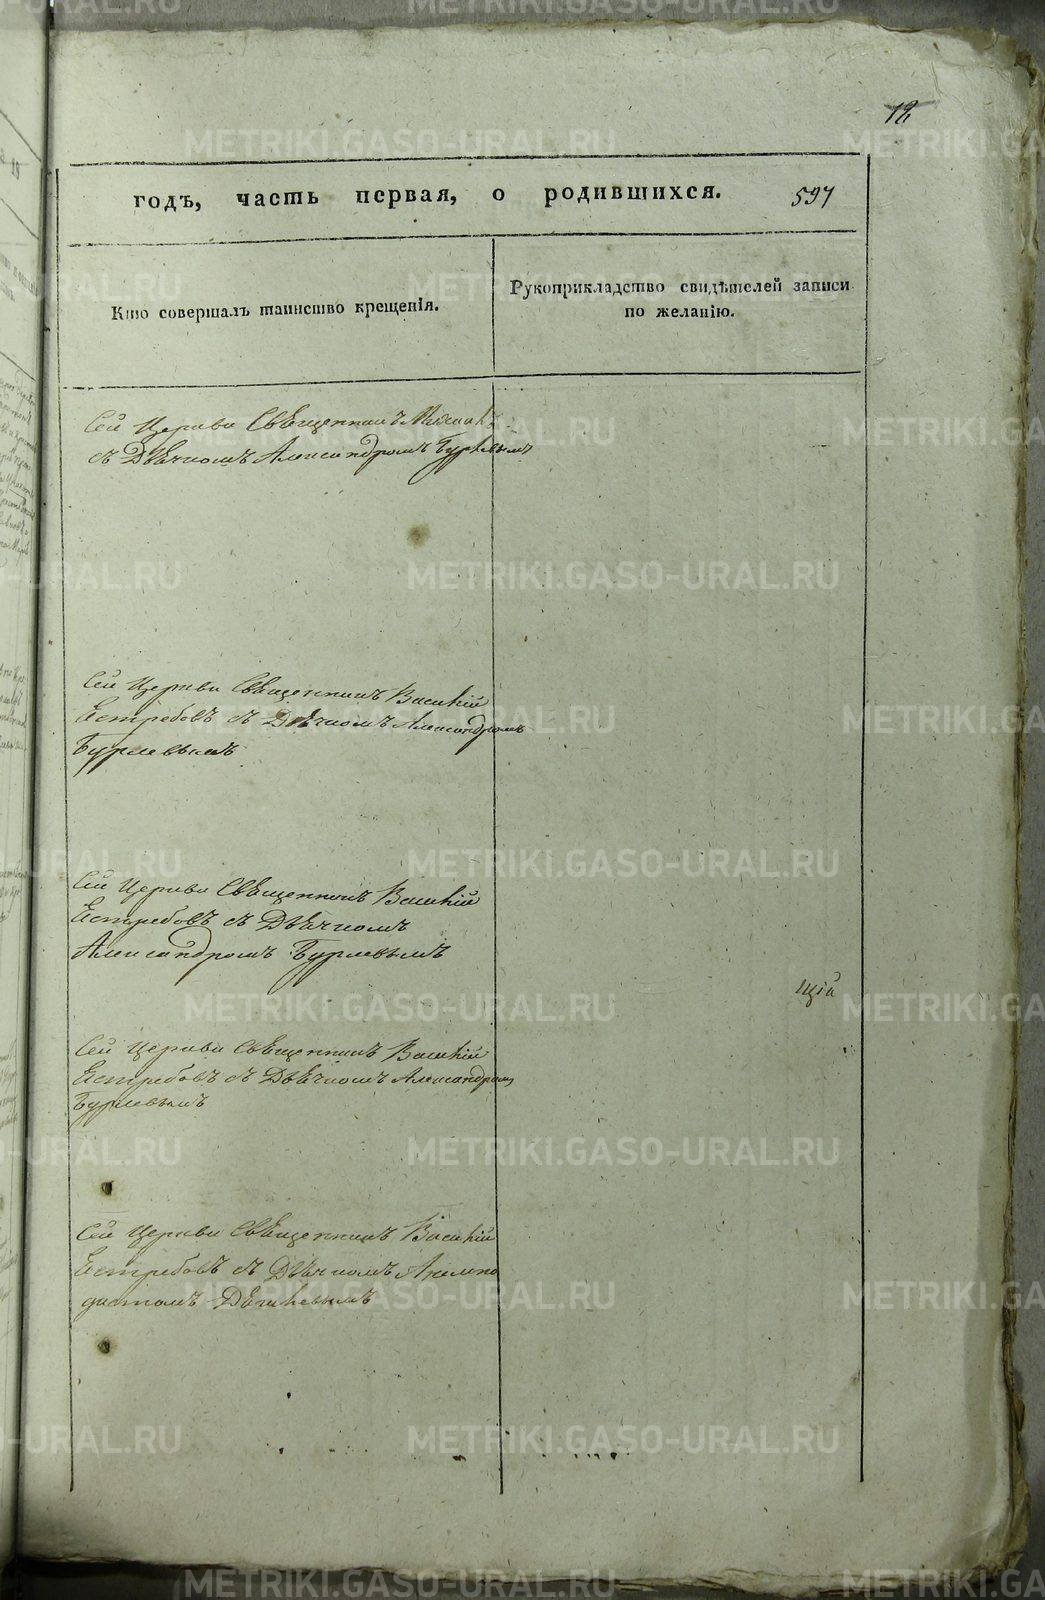 12
годъ, часть первая, о родившихся. 597
Кто совершалъ таинство крещенія.
Рукоприкладство свидѣтелей записи
по желанію.
Сей Церкви Священникъ
съ Дьячкомъ Александромъ Бурлевымъ
Сей Церкви Священникъ Василій
Ястребовъ съ Дьячкомъ Александромъ
Бурлевымъ
Сей Церкви Священникъ Василій
Ястребовъ съ Дьячкомъ
Александромъ Бурлевымъ
щій
Сей Церкви Священникъ Василій
Ястребовъ съ Дьячкомъ Александромъ
Бурлевымъ
Сей Церкви Священникъ Василій
Ястребовъ съ Дьячкомъ
METRIKI.GASO-URAL.RU